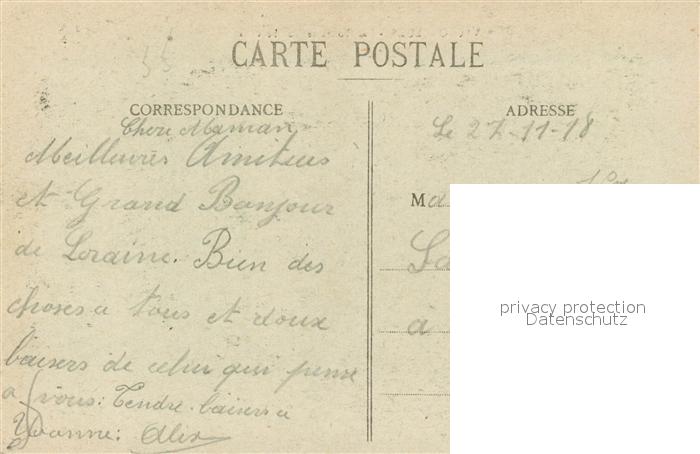 CARTE POSTALE
CORRESPONDANCE
ADRESSE
Chere Maman
Le 27-11-18
Meilleures Amitieus
et Grand Bonjour
de Loraine. Bien des
choses a tous et doux
baisers de celui qui pense
a vous: Tendre baisers a
Yvonne: Alix
Ma
à
privacy protection
Datenschutz